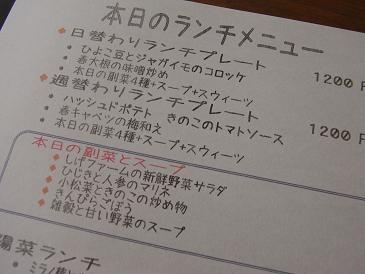 本日のランチメニュー
◆日替わりランチプレート 1200
・ひよこ豆とジャガイモのコロッケ
・春大根の味噌炒め
・本日の副菜4種+スープ+スウィーツ
◆週替わりランチプレート 1200
・ハッシュドポテト きのこのトマトソース
・春キャベツの梅和え
・本日の副菜4種+スープ+スウィーツ
本日の副菜とスープ
◆しげファームの新鮮野菜サラダ
◆ひじきと人参のマリネ
◆小松菜ときのこの炒め物
◆きんぴらごぼう
◆雑穀と甘い野菜のスープ
陽菜ランチ